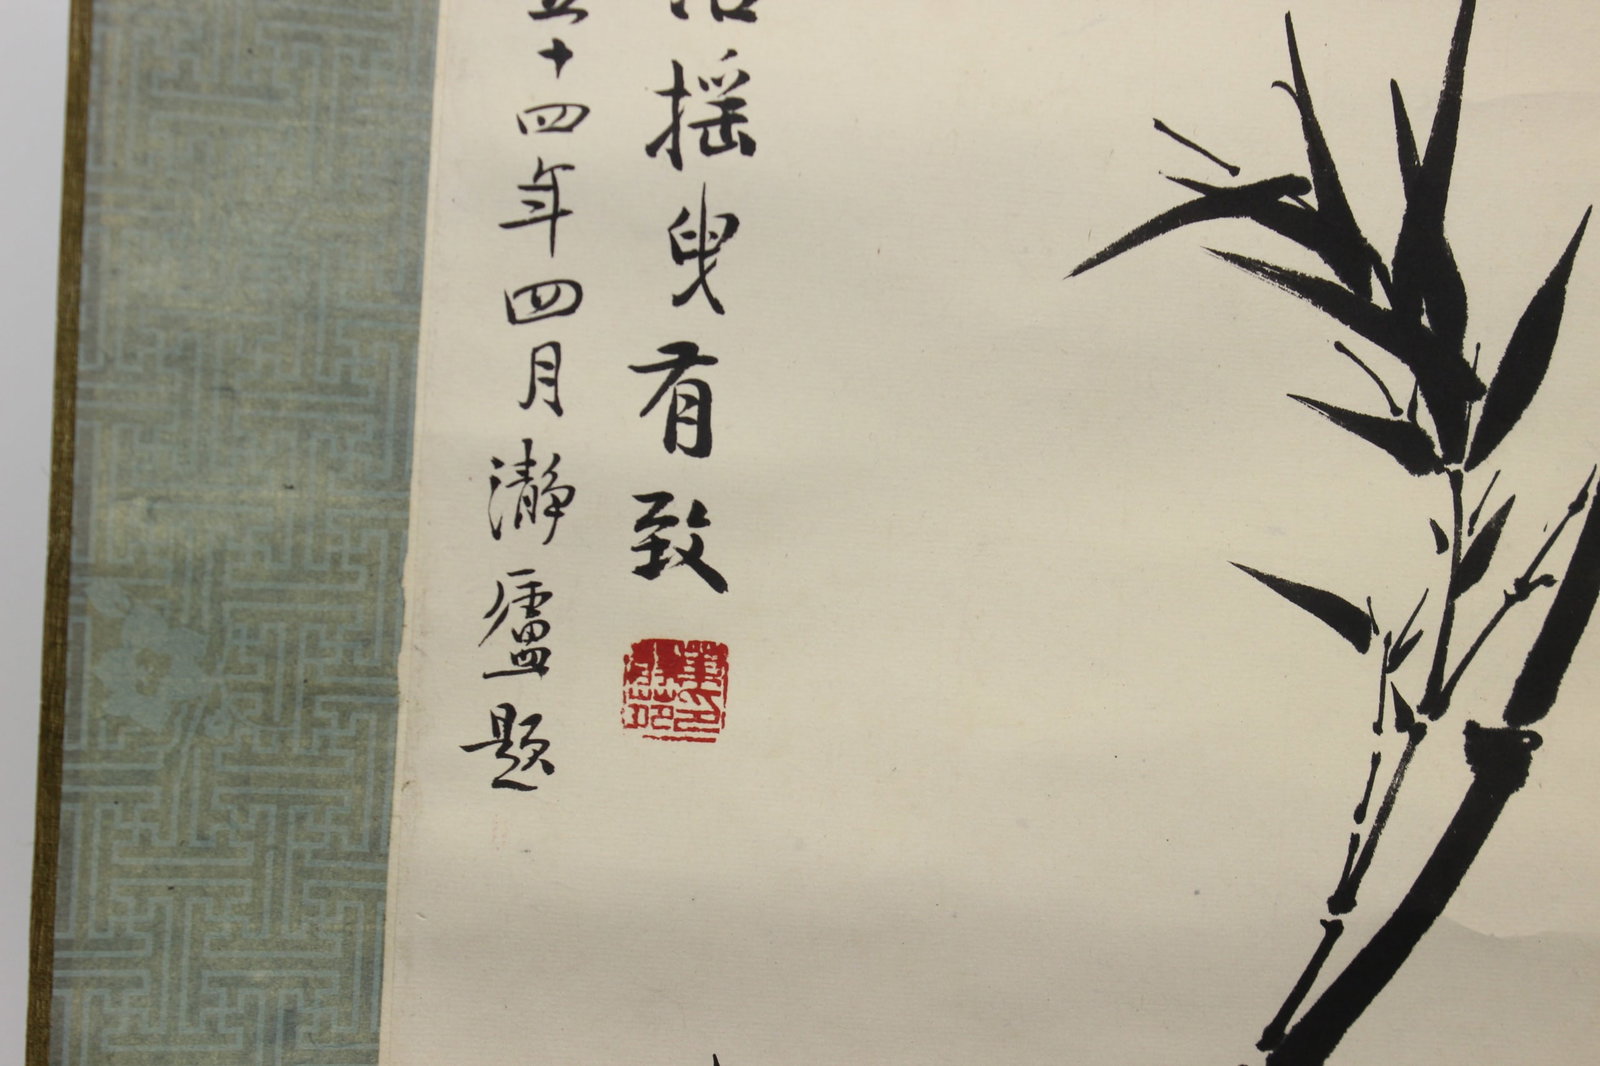 搖曳有致
五十四年四月瀞廬題